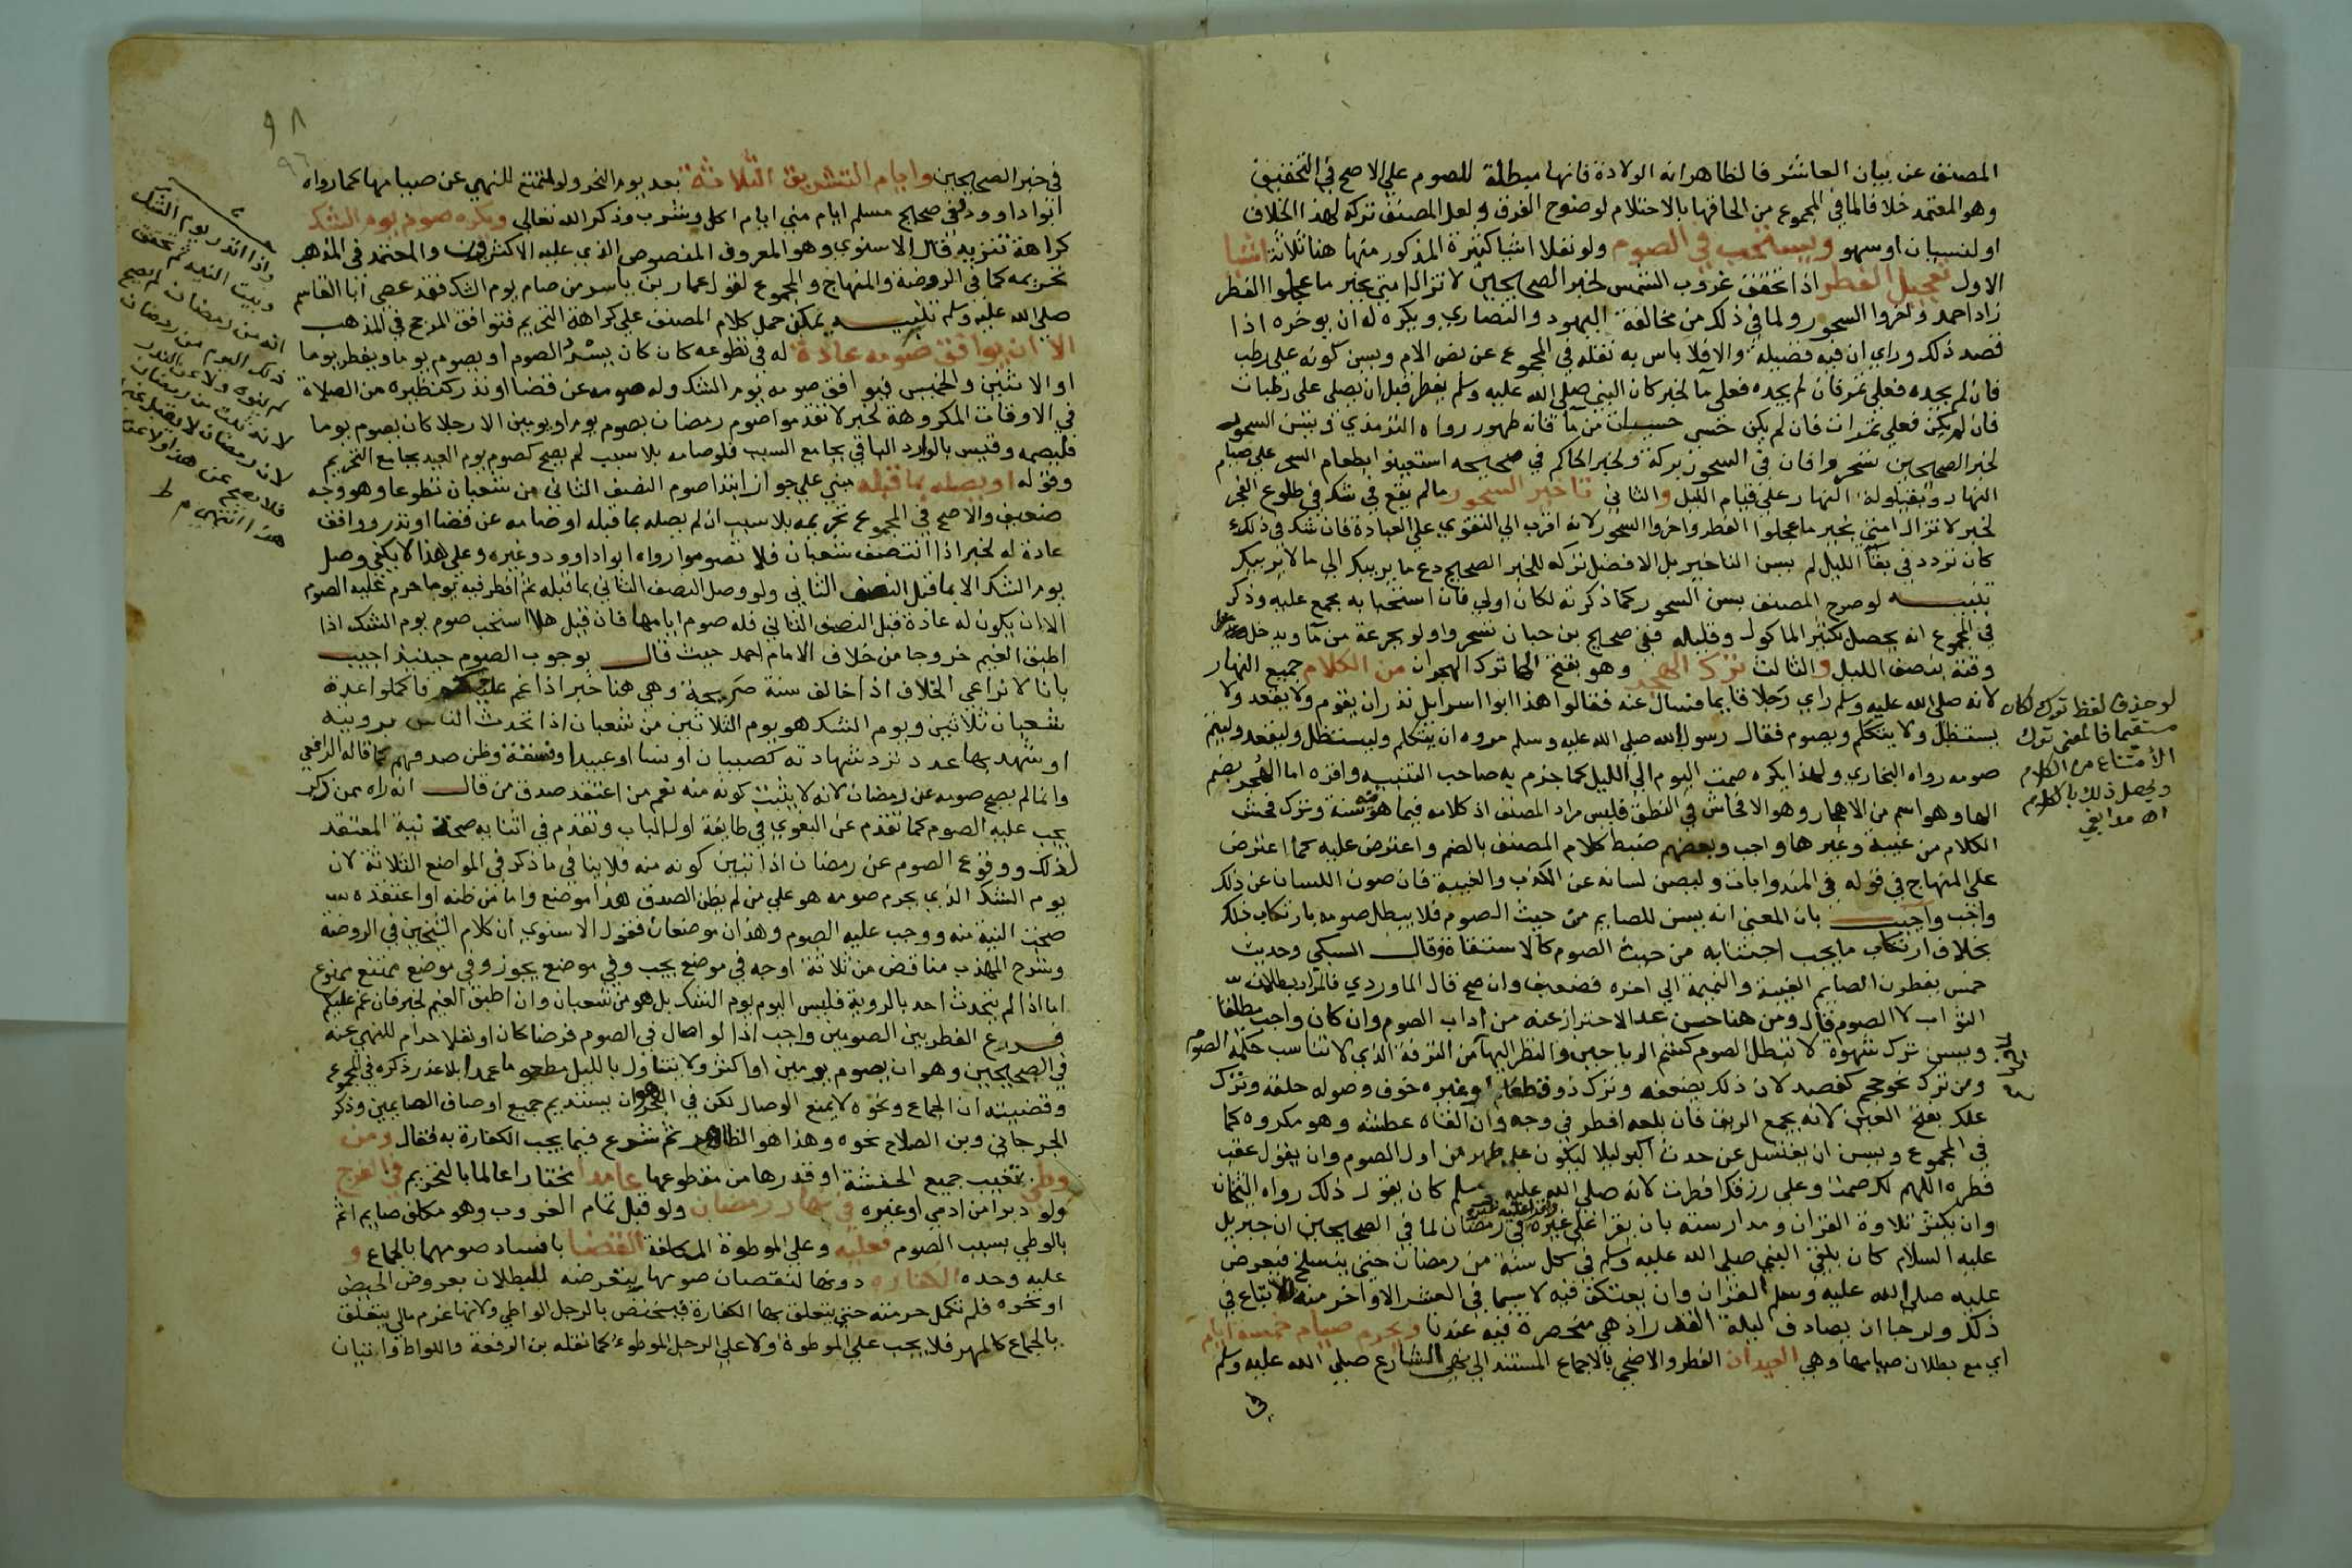 المصنف عن بيان العاشر فالظاهر انه الولادة فانها مبطلة للصوم علي الاصح في التحقيق
وهو المعتمد خلافا لما في المجموع من الحاقها بالاحتلام لوضوح الفرق ولعل المصنف تركه لهذا الخلاف
او لنسيان او سهو ويستحب في الصوم ولو نفلا اشيا كثيرة المذكور منها هنا ثلاثة اشيا
الاول تعجيل الفطر اذا تحقق غروب الشمس لخبر الصحيحين لا تزال امتي بخير ما عجلوا الفطر
زاد احمد واخروا السحور ولما في ذلك من مخالفة اليهود والنصاري ويكره له ان يوخره اذا
قصد ذلك وراي ان فيه فضيلة والا فلا باس به نقله في المجموع عن نص الام ويسن كونه علي رطب
فان لم يجده فعلي تمر فان لم يجده فعلي ما لخبر كان النبي صلي الله عليه وسلم يفطر قبل ان يصلي علي رطبات
فان لم يكن فعلي تمرات فان لم يكن حسي حسوات من ما فانه طهور رواه الترمذي ويسن السحور
لخبر الصحيحين تسحروا فان في السحور بركة ولخبر الحاكم في صحيحه استعينوا بطعام السحر علي صيام
النهار وبقيلولة النهار علي قيام الليل والثاني تاخير السحور ما لم يقع في شك في طلوع الفجر
لخبر لا تزال امتي بخير ما عجلوا الفطر واخروا السحور لانه اقرب الي التقوي علي العبادة فان شك في ذلك
كان تردد في بقا الليل لم يسن التاخير بل الافضل تركه للخبر الصحيح دع ما يريبك الي ما لا يريبك
تنبيه لو صرح المصنف بسن السحور كما ذكرته لكان اولي فان استحبابه مجمع عليه وذكر
في المجموع انه يحصل بكثير الماكول وقليله ففي صحيح بن حبان تسحروا ولو بجرعة من ما ويدخل
وقته بنصف الليل والثالث ترك الهجر وهو بفتح الها ترك الهجران من الكلام جميع النهار
لانه صلي الله عليه وسلم راي رجلا قايما فسال عنه فقالوا هذا ابوا اسرايل نذر ان يقوم ولا يقعد ولا
يستظل ولا يتكلم ويصوم فقال رسول الله صلي الله عليه وسلم مروه ان يتكلم وليستظل وليقعد وليتم
صومه رواه البخاري ولهذا يكره صمت اليوم الي الليل كما جزم به صاحب التنبيه واقره اما الهجر بضم
الها وهو اسم من الاهجار وهو الافحاش في النطق فليس مراد المصنف اذ كلامه فيما هو سنة وترك فحش
الكلام من غيبة وغيرها واجب وبعضهم ضبط كلام المصنف بالضم واعترض عليه كما اعترض
علي المنهاج في قوله في المندوبات وليصن لسانه عن الكذب والغيبة فان صون اللسان عن ذلك
واجب واجيب بان المعني انه يسن للصايم من حيث الصوم فلا يبطل صومه بارتكاب ذلك
بخلاف ارتكاب ما يجب اجتنابه من حيث الصوم كالاستقاة وقال السبكي وحديث
خمس يفطرن الصايم الغيبة والنميمة الي اخره فضعيف وان صح قال الماوردي فالمراد بطلان
الثواب لا الصوم قال ومن هنا حسن عد الاحتراز عنه من اداب الصوم وان كان واجب مطلقا
ويسن ترك شهوة لا تبطل الصوم كشم الرياحين والنظر اليها من الترفه الذي لا تناسب حكمة الصوم
ومن ترك نحو حجم كفصد لان ذلك يضعفه وترك ذوق طعام او غيره خوف وصوله حلقه وترك
علك بفتح العين لانه يجمع الريق فان بلعه افطر في وجه وان القاه عطشه وهو مكروه كما
في المجموع ويسن ان يغتسل عن حدث اكبر ليلا ليكون علي طهر من اول الصوم وان يقول عقب
فطره اللهم لك صمت وعلي رزقك افطرت لانه صلي الله عليه وسلم كان يقول ذلك رواه الشيخان
وان يكثر تلاوة القران ومدارسته بان يقرا علي غيره في رمضان لما في الصحيحين ان جبريل
عليه السلام كان يلقي النبي صلي الله عليه وسلم في كل سنة من رمضان حتي ينسلخ فيعرض
عليه صلي الله عليه وسلم القران وان يعتكف فيه لا سيما في العشر الاواخر منه للاتباع في
ذلك ولرجا ان يصادف ليلة القدر اذ هي منحصرة فيه عندنا ويحرم صيام خمسة ايام
اي مع بطلان صيامها وهي العيدان الفطر والاضحي بالاجماع المستند الي نهي الشارع صلي الله عليه وسلم
في
لو حذف لفظ ترك لكان
مستقيما فالمعني ترك
الامتناع من الكلام
ويحصل ذلك بالكلام
اه مدابغي
٩٨
٩٦
في خبر الصحيحين وايام التشريق الثلاثة بعد يوم النحر ولو لمتمتع للنهي عن صيامها كما رواه
ابوا داوود وفي صحيح مسلم ايام مني ايام اكل وشرب وذكر الله تعالي ويكره صوم يوم الشك
كراهة تنزيه قال الاسنوي وهو المعروف المنصوص الذي عليه الاكثرون والمعتمد في المذهب
تحريمه كما في الروضة والمنهاج والمجموع لقول عمار بن ياسر من صام يوم الشك فقد عصي ابا القاسم
صلي الله عليه وسلم تنبيه يمكن حمل كلام المصنف علي كراهة التحريم فتوافق المرجح في المذهب
الا ان يوافق صومه عادة له في تطوعه كان كان يسرد الصوم او يصوم يوما ويفطر يوما
او الاثنين والخميس فيوافق صومه يوم الشك وله صومه عن قضا او نذر كنظيره من الصلاة
في الاوقات المكروهة لخبر لا تقدموا صوم رمضان بصوم يوم او يومين الا رجلا كان يصوم يوما
فليصمه وقيس بالوارد الباقي بجامع السبب فلو صامه بلا سبب لم يصح كصوم يوم العيد بجامع التحريم
وقوله او يصله بما قبله مبني علي جواز ابتدا صوم النصف الثاني من شعبان تطوعا وهو وجه
ضعيف والاصح في المجموع تحريمه بلا سبب ان لم يصله بما قبله او صامه عن قضا او نذر ووافق
عادة له لخبر اذا انتصف شعبان فلا تصوموا رواه ابوا داوود وغيره وعلي هذا لا يكفي وصل
يوم الشك الا بما قبل النصف الثاني ولو وصل النصف الثاني بما قبله ثم افطر فيه يوما حرم عليه الصوم
الا ان يكون له عادة قبل النصف الثاني فله صوم ايامها فان قيل هلا استحب صوم يوم الشك اذا
اطبق الغيم خروجا من خلاف الامام احمد حيث قال بوجوب الصوم حينيذ اجيب
بانا لا نراعي الخلاف اذا خالف سنة صريحة وهي هنا خبر اذا غم عليكم فاكملوا عدة
شعبان ثلاثين ويوم الشك هو يوم الثلاثين من شعبان اذا تحدث الناس برويته
او شهد بها عدد ترد شهادته كصبيان او نسا او عبيد او فسقة وظن صدقهم كما قاله الرافعي
وانما لم يصح صومه عن رمضان لانه لا يثبت كونه منه نعم من اعتقد صدق من قال انه راه ممن ذكر
يجب عليه الصوم كما تقدم عن البغوي في طايفة اول الباب وتقدم في اثنا به صحة نية المعتقد
لذلك ووقوع الصوم عن رمضان اذا تبين كونه منه فلا ينافي ما ذكر في المواضع الثلاثة لان
يوم الشك الذي يحرم صومه هو علي من لم يظن الصدق هذا موضع واما من ظنه او اعتقده
صحت النية منه ووجب عليه الصوم وهذان موضعان فقول الاسنوي ان كلام الشيخين في الروضة
وشرح المهذب مناقض من ثلاثة اوجه في موضع يجب وفي موضع يجوز وفي موضع يمتنع ممنوع
اما اذا لم يتحدث احد بالروية فليس اليوم يوم الشك بل هو من شعبان وان اطبق الغيم لخبر فان غم عليكم
فرع الفطر بين الصومين واجب اذ الوصال في الصوم فرضا كان او نفلا حرام للنهي عنه
في الصحيحين وهو ان يصوم يومين او اكثر ولا يتناول بالليل مطعوما عمدا بلا عذر ذكره في المجموع
وقضيته ان الجماع ونحوه لا يمنع الوصال لكن في البحر هو ان يستديم جميع اوصاف الصايمين وذكر
الجرجاني وبن الصلاح نحوه وهذا هو الظاهر ثم شرع فيما يجب الكفارة به فقال ومن
وطئ بتغييب جميع الحشفة او قدرها من مقطوعها عامدا مختارا عالما بالتحريم في الفرج
ولو دبرا من ادمي او غيره في نهار رمضان ولو قبل تمام الغروب وهو مكلف صايم اثم
بالوطي بسبب الصوم فعليه وعلي الموطوة المكلفة القضا بافساد صومهما بالجماع و
عليه وحده الكفارة دونها لنقصان صومها بتعرضه للبطلان بعروض الحيض
او نحوه فلم تكمل حرمته حتي يتعلق بها الكفارة فيختص بالرجل الواطي ولانها غرم مالي يتعلق
بالجماع كالمهر فلا يجب علي الموطوة ولا علي الرجل الموطوء كما نقله بن الرفعة واللواط واتيان
واذا انذر يوم الشك
وبيت النية ثم تحقق
انه من رمضان لم يصح
ذلك اليوم من رمضان
لم ينوه ولا عن النذر
لانه ثبت من رمضان
لان رمضان لا يقبل غيره
فلا يصح عن هذا ولا عن
هذا انتهي م ط